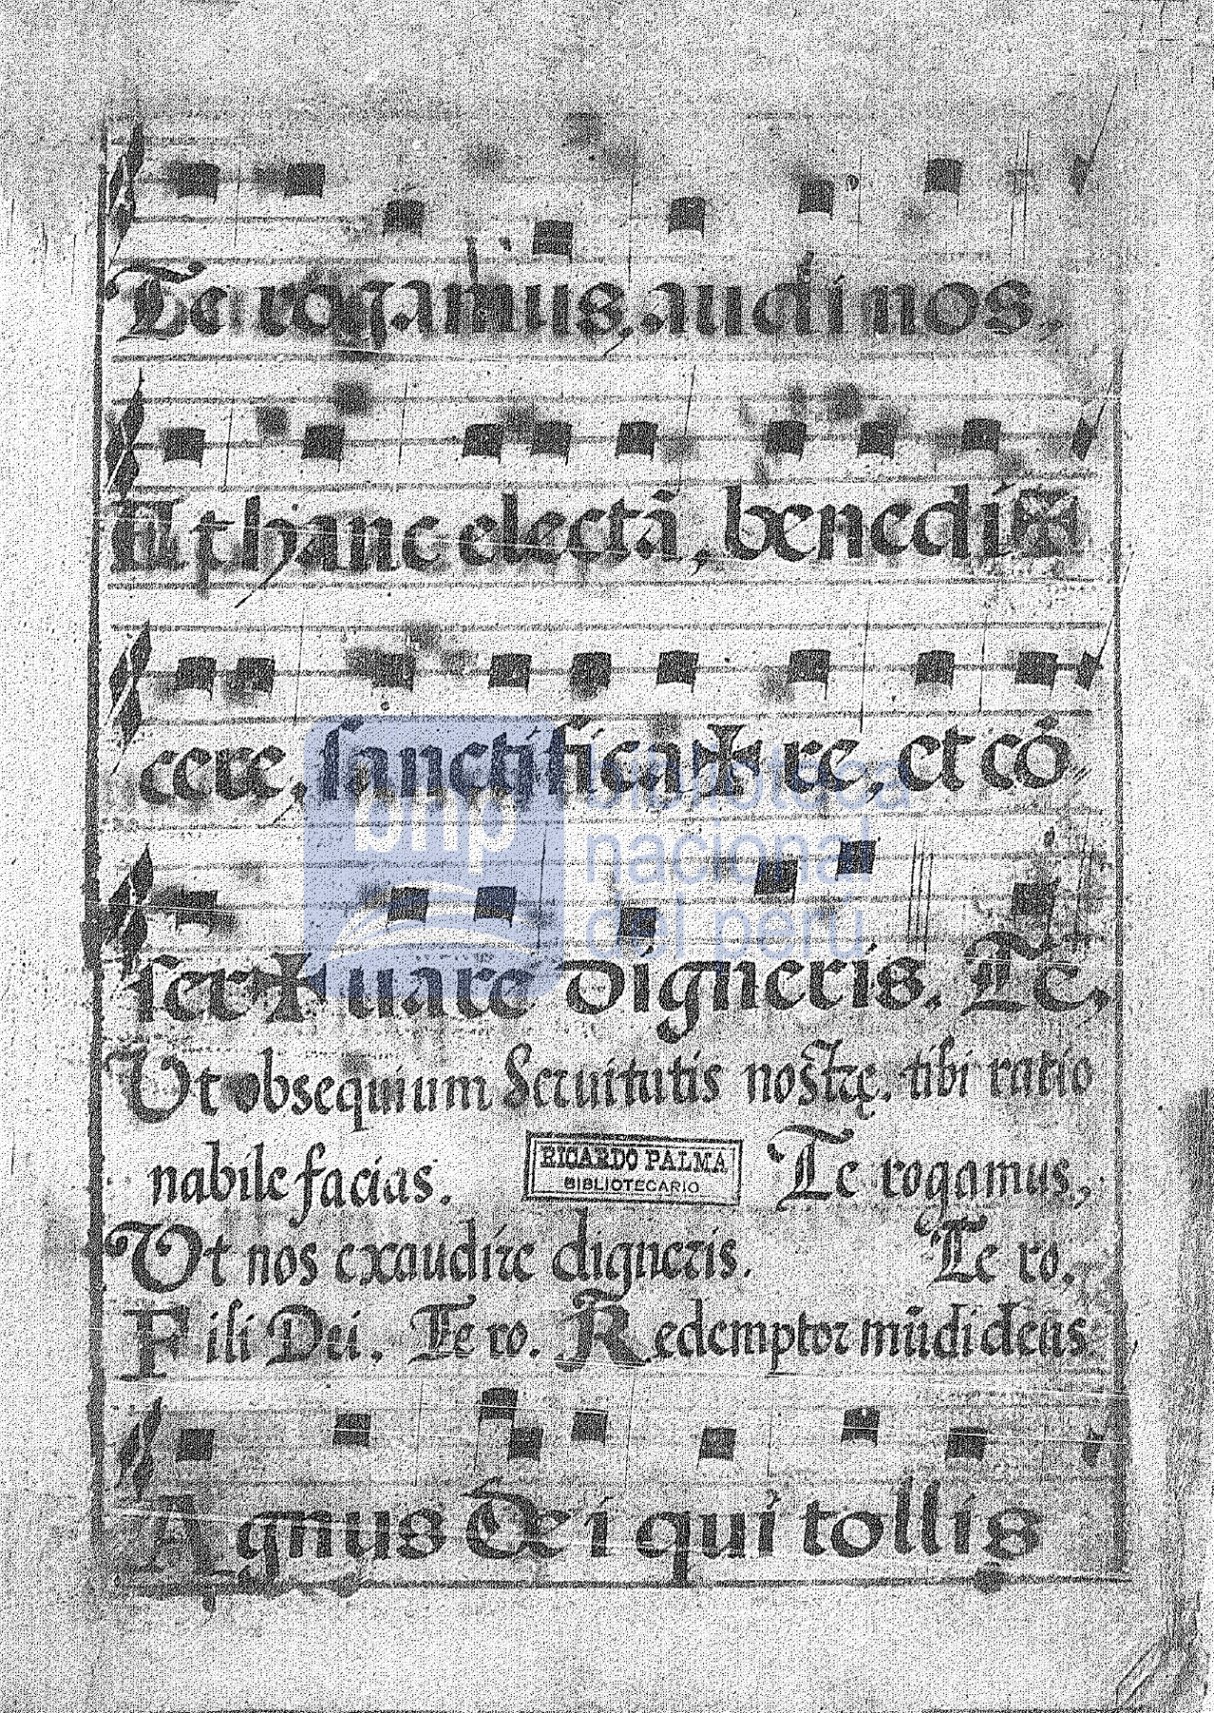 Te rogamus, audi nos.
Et hanc electã, benedi✠
cere, sanctifica✠re, et cõ
ser✠uare digneris. Te,
Ut obsequium Seruitutis nostrę. tibi ratio
nabile facias. Te rogamus,
RICARDO PALMA
BIBLIOTECARIO
Ut nos exaudire digneris. Te ro.
Fili Dei. Te ro. Redemptor mũdi deus.
Agnus Dei qui tollis
bnp biblioteca
nacional
del perú